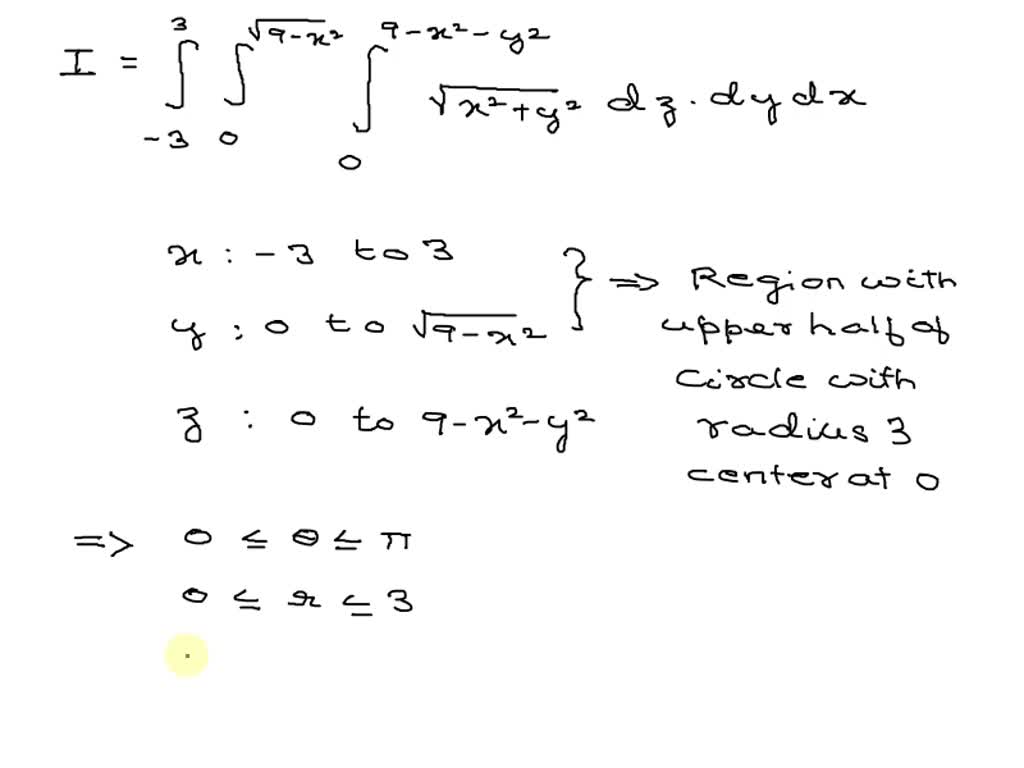 I = ∫_{-3}^{3} ∫_{0}^{√(9-x²)} ∫_{0}^{9-x²-y²} √(x²+y²) dz.dydx
x : -3 to 3
y : 0 to √(9-x²)
} => Region with
upper half of
Circle with
radius 3
center at 0
z : 0 to 9-x²-y²
=> 0 ≤ θ ≤ π
0 ≤ r ≤ 3